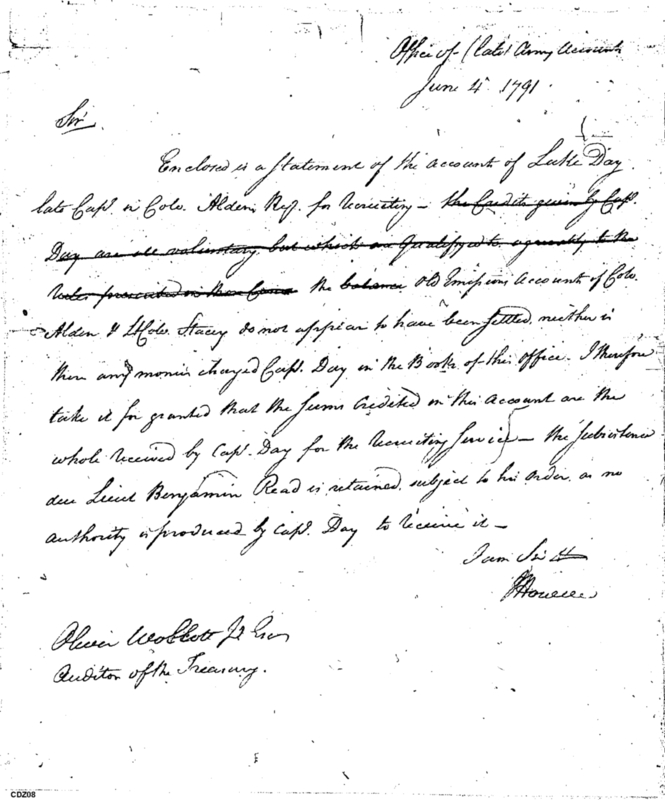 Office of (late) Army Accounts
June 4 1791
Sir
Enclosed is a Statement of the Account of Luke Day
late Capt. in Colo. Alden Reg. for recruiting – the Credits given by Capt.
Day are all voluntary, but which are Qualifyed to agreeably to the
rules prescribed in these Cases the balance Old Emissions Accounts of Colo.
Alden & Lt Colo. Stacey do not appear to have been settled, neither is
there any monies charged Capt. Day in the Books of this Office. I therefore
take it for granted that the Sums Credited in this Account are the
whole received by Capt. Day for the recruiting Service – the Subsistence
due Lieut Benjamin Read is retained, subject to his order, as no
authority is produced by Capt. Day to receive it –
I am Sir &
JHowell
Oliver Wolcott Jr Esqr
Auditor of the Treasury.
CDZ08